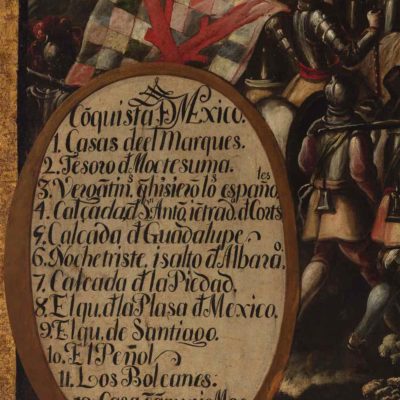 Cōquista đ MExico.
1. Casas deel Marques.
2. Tesoro đ Moctesuma.
3. Vergātin.s q̃ hisierō los españoles
4. Calçada đ Sn. Antō, ietrađ. đ Cortes
5. Calcada đ Guadalupe
6. Nochetriste, isalto đ Albarao.
7. Calcada đ la Piedad.
8. El qu. đ la Plasa đ Mexico.
9. El qu. de Santiago.
10. El Peñol
11. Los Bolcanes: